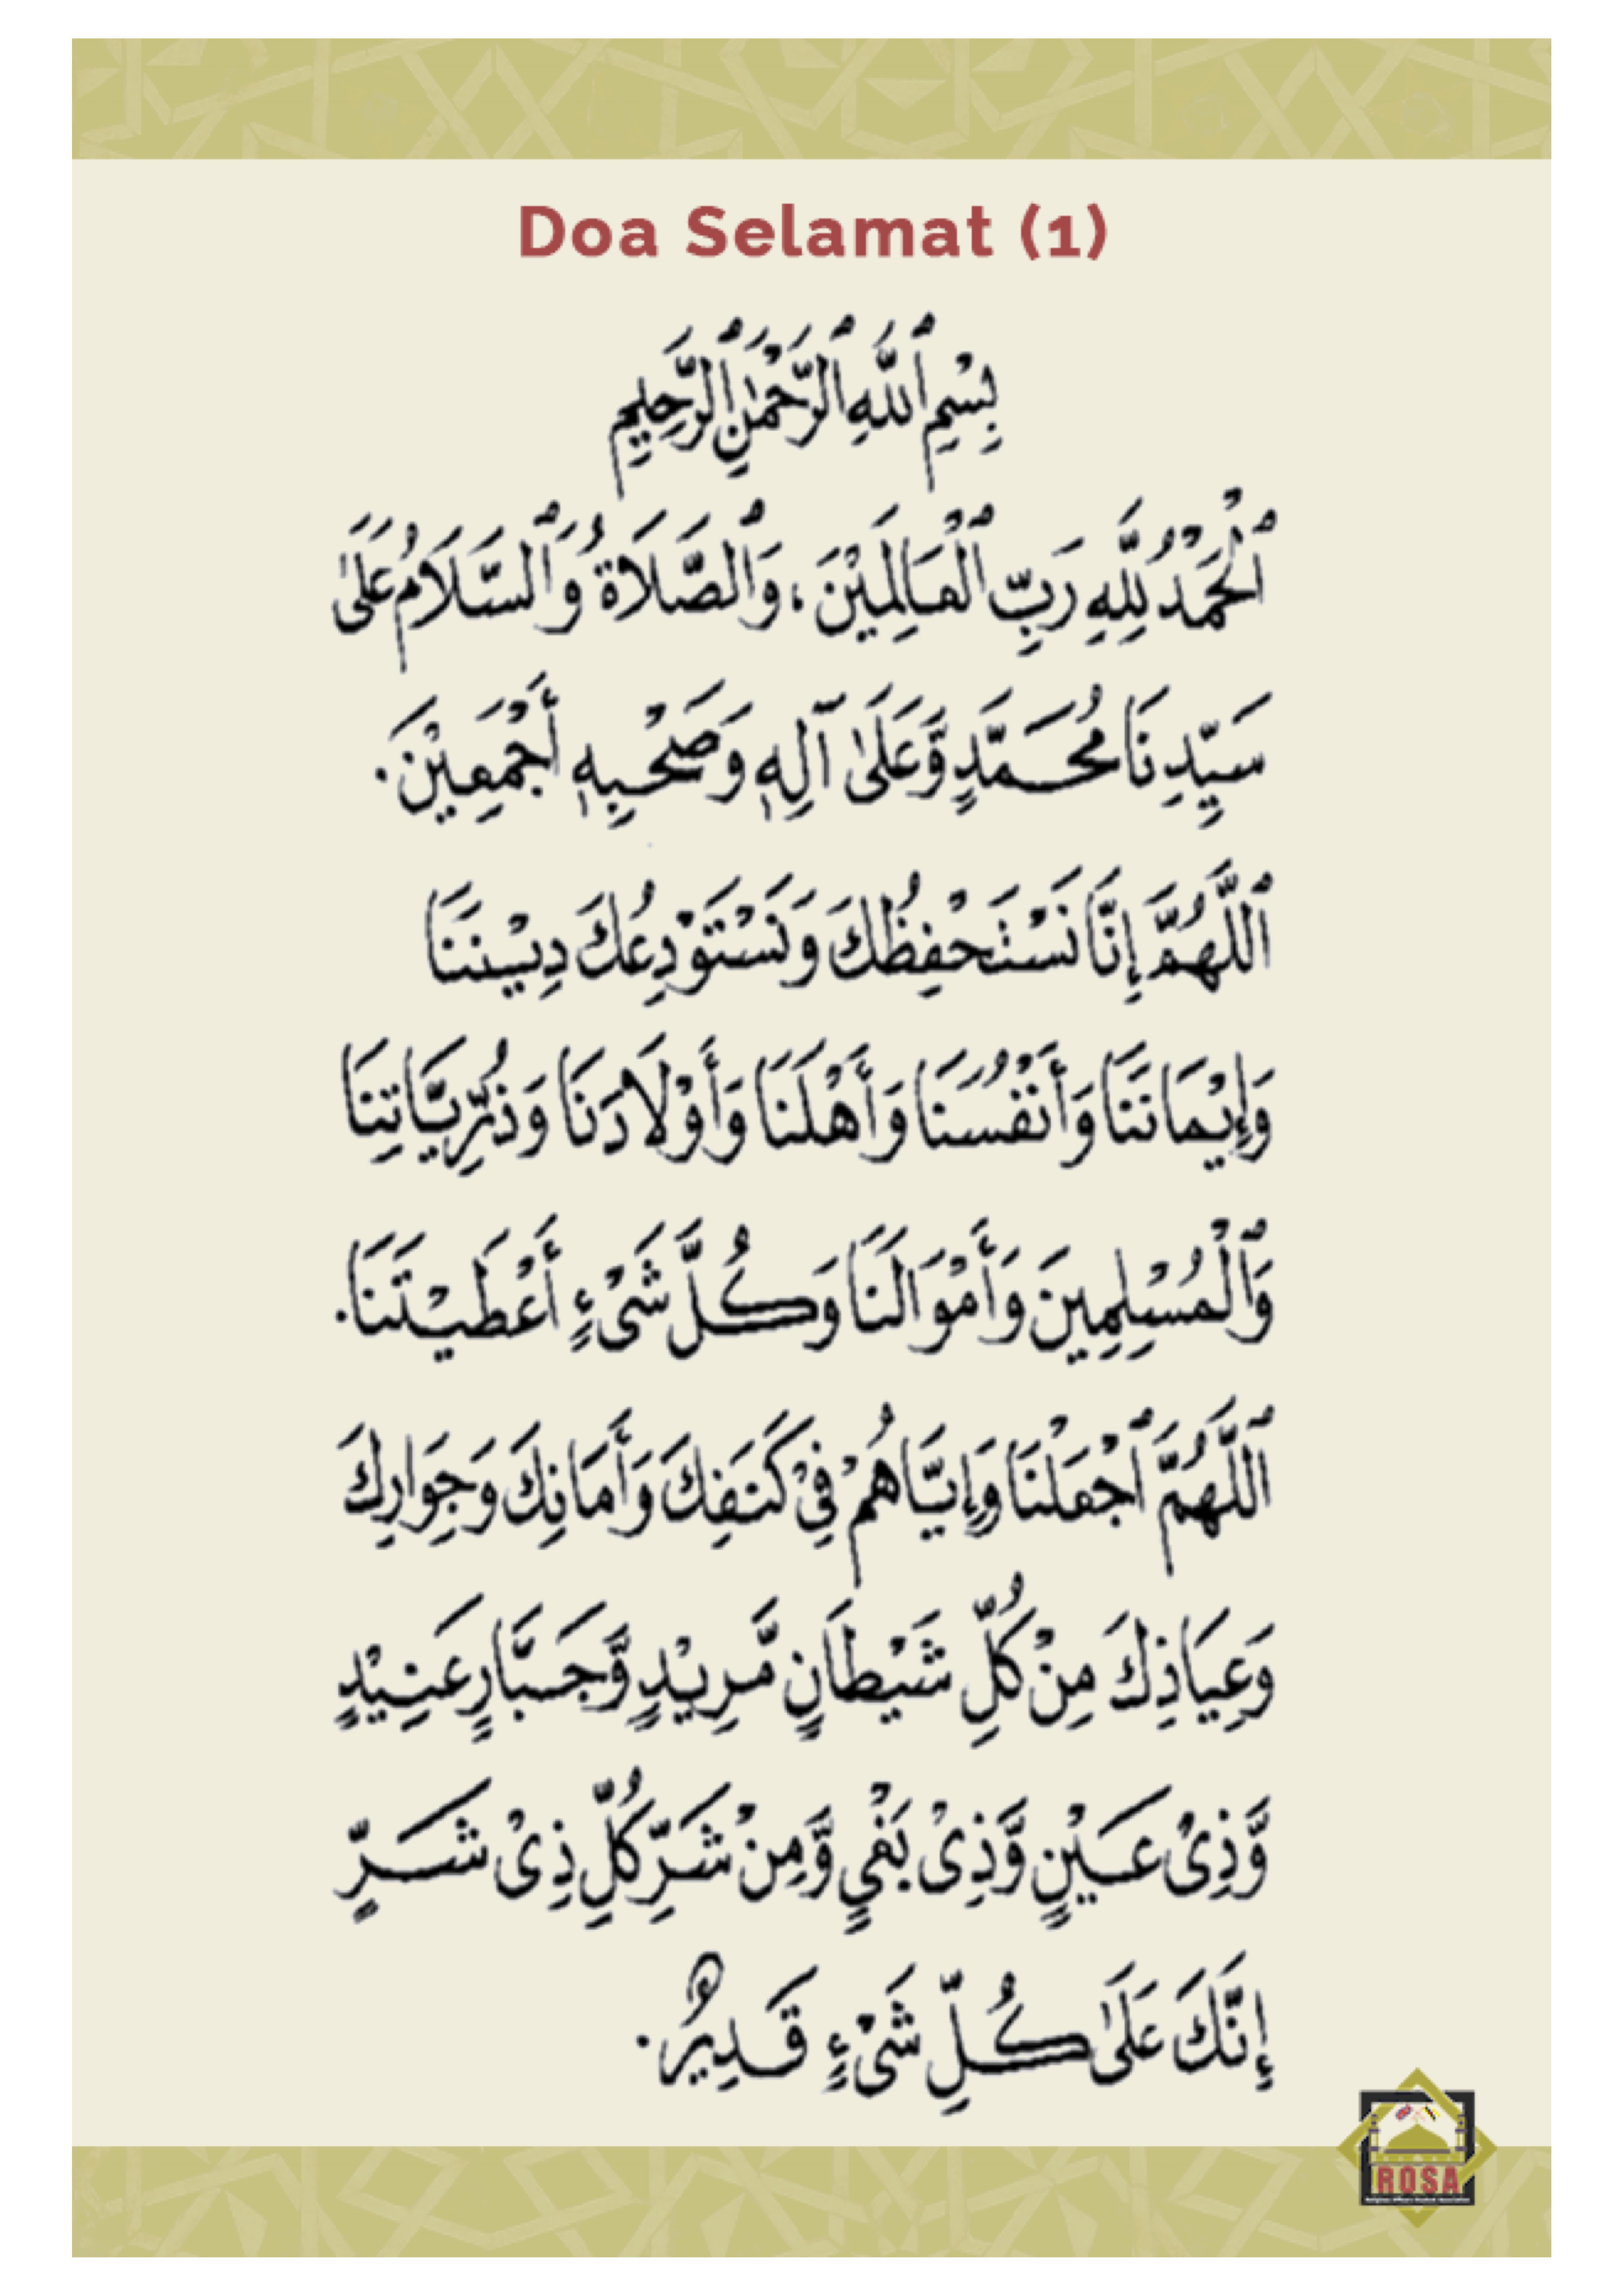 Doa Selamat (1)
بِسْمِ ٱللَّهِ ٱلرَّحْمَٰنِ ٱلرَّحِيمِ
ٱلْحَمْدُ لِلَّهِ رَبِّ ٱلْعَالَمِيْنَ، وَٱلصَّلَاةُ وَٱلسَّلَامُ عَلَىٰ
سَيِّدِنَا مُحَمَّدٍ وَّعَلَىٰ آلِهٖ وَصَحْبِهٖ أَجْمَعِيْنَ.
ٱللَّهُمَّ إِنَّا نَسْتَحْفِظُكَ وَنَسْتَوْدِعُكَ دِيْنَنَا
وَإِيْمَانَنَا وَأَنْفُسَنَا وَأَهْلَنَا وَأَوْلَادَنَا وَذُرِّيَّاتِنَا
وَٱلْمُسْلِمِينَ وَأَمْوَالَنَا وَكُلَّ شَىْءٍ أَعْطَيْتَنَا.
ٱللَّهُمَّ ٱجْعَلْنَا وَإِيَّاهُمْ فِيْ كَنَفِكَ وَأَمَانِكَ وَجِوَارِكَ
وَعِيَاذِكَ مِنْ كُلِّ شَيْطَانٍ مَّرِيْدٍ وَّجَبَّارٍ عَنِيْدٍ
وَّذِىْ عَيْنٍ وَّذِىْ بَغْيٍ وَّمِنْ شَرِّ كُلِّ ذِىْ شَرٍّ
إِنَّكَ عَلَىٰ كُلِّ شَىْءٍ قَدِيْرٌ.
ROSA